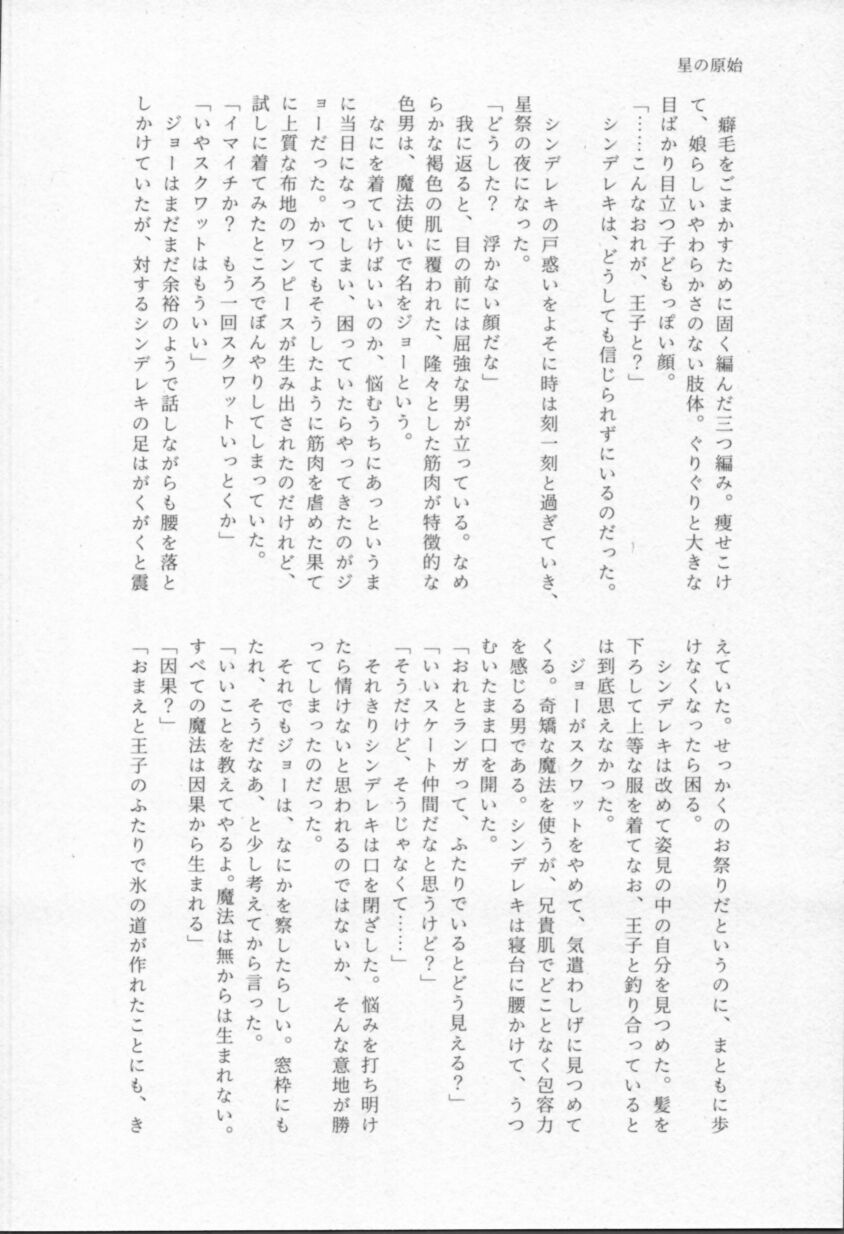 星の原始
癖毛をごまかすために固く編んだ三つ編み。痩せこけ
て、娘らしいやわらかさのない肢体。ぐりぐりと大きな
目ばかり目立つ子どもっぽい顔。
「……こんなおれが、王子と?」
シンデレキは、どうしても信じられずにいるのだった。
シンデレキの戸惑いをよそに時は刻一刻と過ぎていき、
星祭の夜になった。
「どうした? 浮かない顔だな」
我に返ると、目の前には屈強な男が立っている。なめ
らかな褐色の肌に覆われた、隆々とした筋肉が特徴的な
色男は、魔法使いで名をジョーという。
なにを着ていけばいいのか、悩むうちにあっというま
に当日になってしまい、困っていたらやってきたのがジ
ョーだった。かつてもそうしたように筋肉を虐めた果て
に上質な布地のワンピースが生み出されたのだけれど、
試しに着てみたところでぼんやりしてしまっていた。
「イマイチか? もう一回スクワットいっとくか」
「いやスクワットはもういい」
ジョーはまだまだ余裕のようで話しながらも腰を落と
しかけていたが、対するシンデレキの足はがくがくと震
えていた。せっかくのお祭りだというのに、まともに歩
けなくなったら困る。
シンデレキは改めて姿見の中の自分を見つめた。髪を
下ろして上等な服を着てなお、王子と釣り合っていると
は到底思えなかった。
ジョーがスクワットをやめて、気遣わしげに見つめて
くる。奇矯な魔法を使うが、兄貴肌でどことなく包容力
を感じる男である。シンデレキは寝台に腰かけて、うつ
むいたまま口を開いた。
「おれとランガって、ふたりでいるとどう見える?」
「いいスケート仲間だなと思うけど?」
「そうだけど、そうじゃなくて……」
それきりシンデレキは口を閉ざした。悩みを打ち明け
たら情けないと思われるのではないか、そんな意地が勝
ってしまったのだった。
それでもジョーは、なにかを察したらしい。窓枠にも
たれ、そうだなあ、と少し考えてから言った。
「いいことを教えてやるよ。魔法は無からは生まれない。
すべての魔法は因果から生まれる」
「因果?」
「おまえと王子のふたりで氷の道が作れたことにも、き